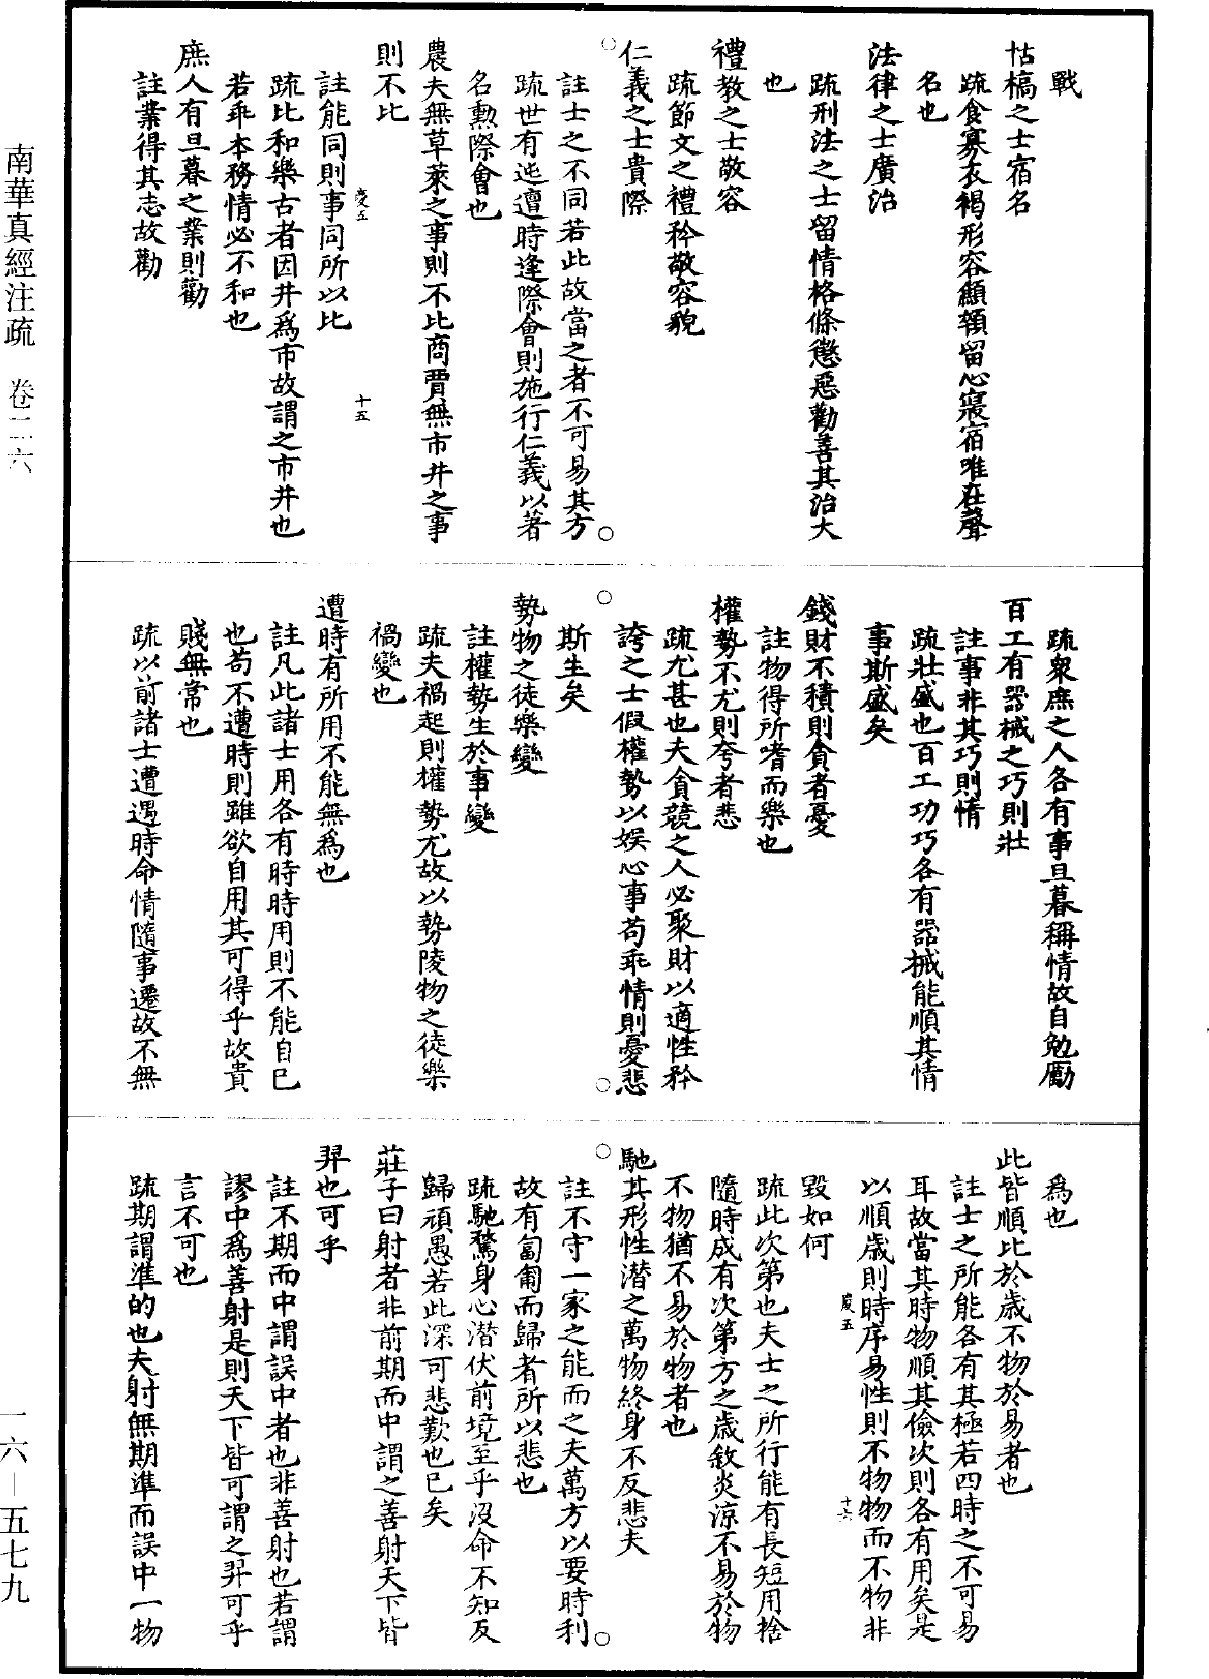 戰
怙槁之士宿名
疏食寡衣褐形容顦顇留心寢宿唯在聲
名也
法律之士廣治
疏刑法之士留情格條懲惡勸善其治大
也
禮教之士敬容
疏節文之禮矜敬容貌
仁義之士貴際
註士之不同若此故當之者不可易其方
疏世有迍邅時逢際會則施行仁義以著
名勳際會也
農夫無草萊之事則不比商賈無市井之事
則不比
慶五
十五
註能同則事同所以比
疏比和樂古者因井爲市故謂之市井也
若乖本務情必不和也
庶人有旦暮之業則勸
註業得其志故勸
疏衆庶之人各有事旦暮稱情故自勉勵
百工有器械之巧則壯
註事非其巧則惰
疏壯盛也百工功巧各有器械能順其情
事斯盛矣
錢財不積則貪者憂
註物得所嗜而樂也
權勢不尤則夸者悲
疏尤甚也夫貪競之人必聚財以適性矜
誇之士假權勢以娛心事苟乖情則憂悲
斯生矣
勢物之徒樂變
註權勢生於事變
疏夫禍起則權勢尤故以勢陵物之徒樂
禍變也
遭時有所用不能無爲也
註凡此諸士用各有時時用則不能自已
也苟不遭時則雖欲自用其可得乎故貴
賤無常也
疏以前諸士遭遇時命情隨事遷故不無
爲也
此皆順比於歲不物於易者也
註士之所能各有其極若四時之不可易
耳故當其時物順其儉次則各有用矣是
以順歲則時序易性則不物物而不物非
慶五
十六
毀如何
疏此次第也夫士之所行能有長短用捨
隨時成有次第方之歲敘炎涼不易於物
不物猶不易於物者也
馳其形性潛之萬物終身不反悲夫
註不守一家之能而之夫萬方以要時利
故有匐匍而歸者所以悲也
疏馳騖身心潛伏前境至乎沒命不知反
歸頑愚若此深可悲歎也已矣
莊子曰射者非前期而中謂之善射天下皆
羿也可乎
註不期而中謂誤中者也非善射也若謂
謬中爲善射是則天下皆可謂之羿可乎
言不可也
疏期謂準的也夫射無期準而誤中一物
南華真經注疏 卷二六
一六—五七九